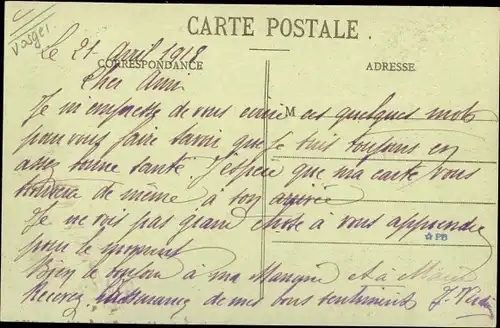 Vosges
CARTE POSTALE.
Le 21 avril 1918
CORRESPONDANCE
ADRESSE
Cher Ami
M
Je m'empresse de vous écrire ces quelques mots
pour vous faire savoir que je suis toujours en
assez bonne santé J'espère que ma carte vous
trouvera de même à son arrivée
Je ne vois pas grand chose à vous apprendre
pour le moment
☆PB
Bien le bonjour à ma Marraine et à
Recevez de mes bons sentiments J.